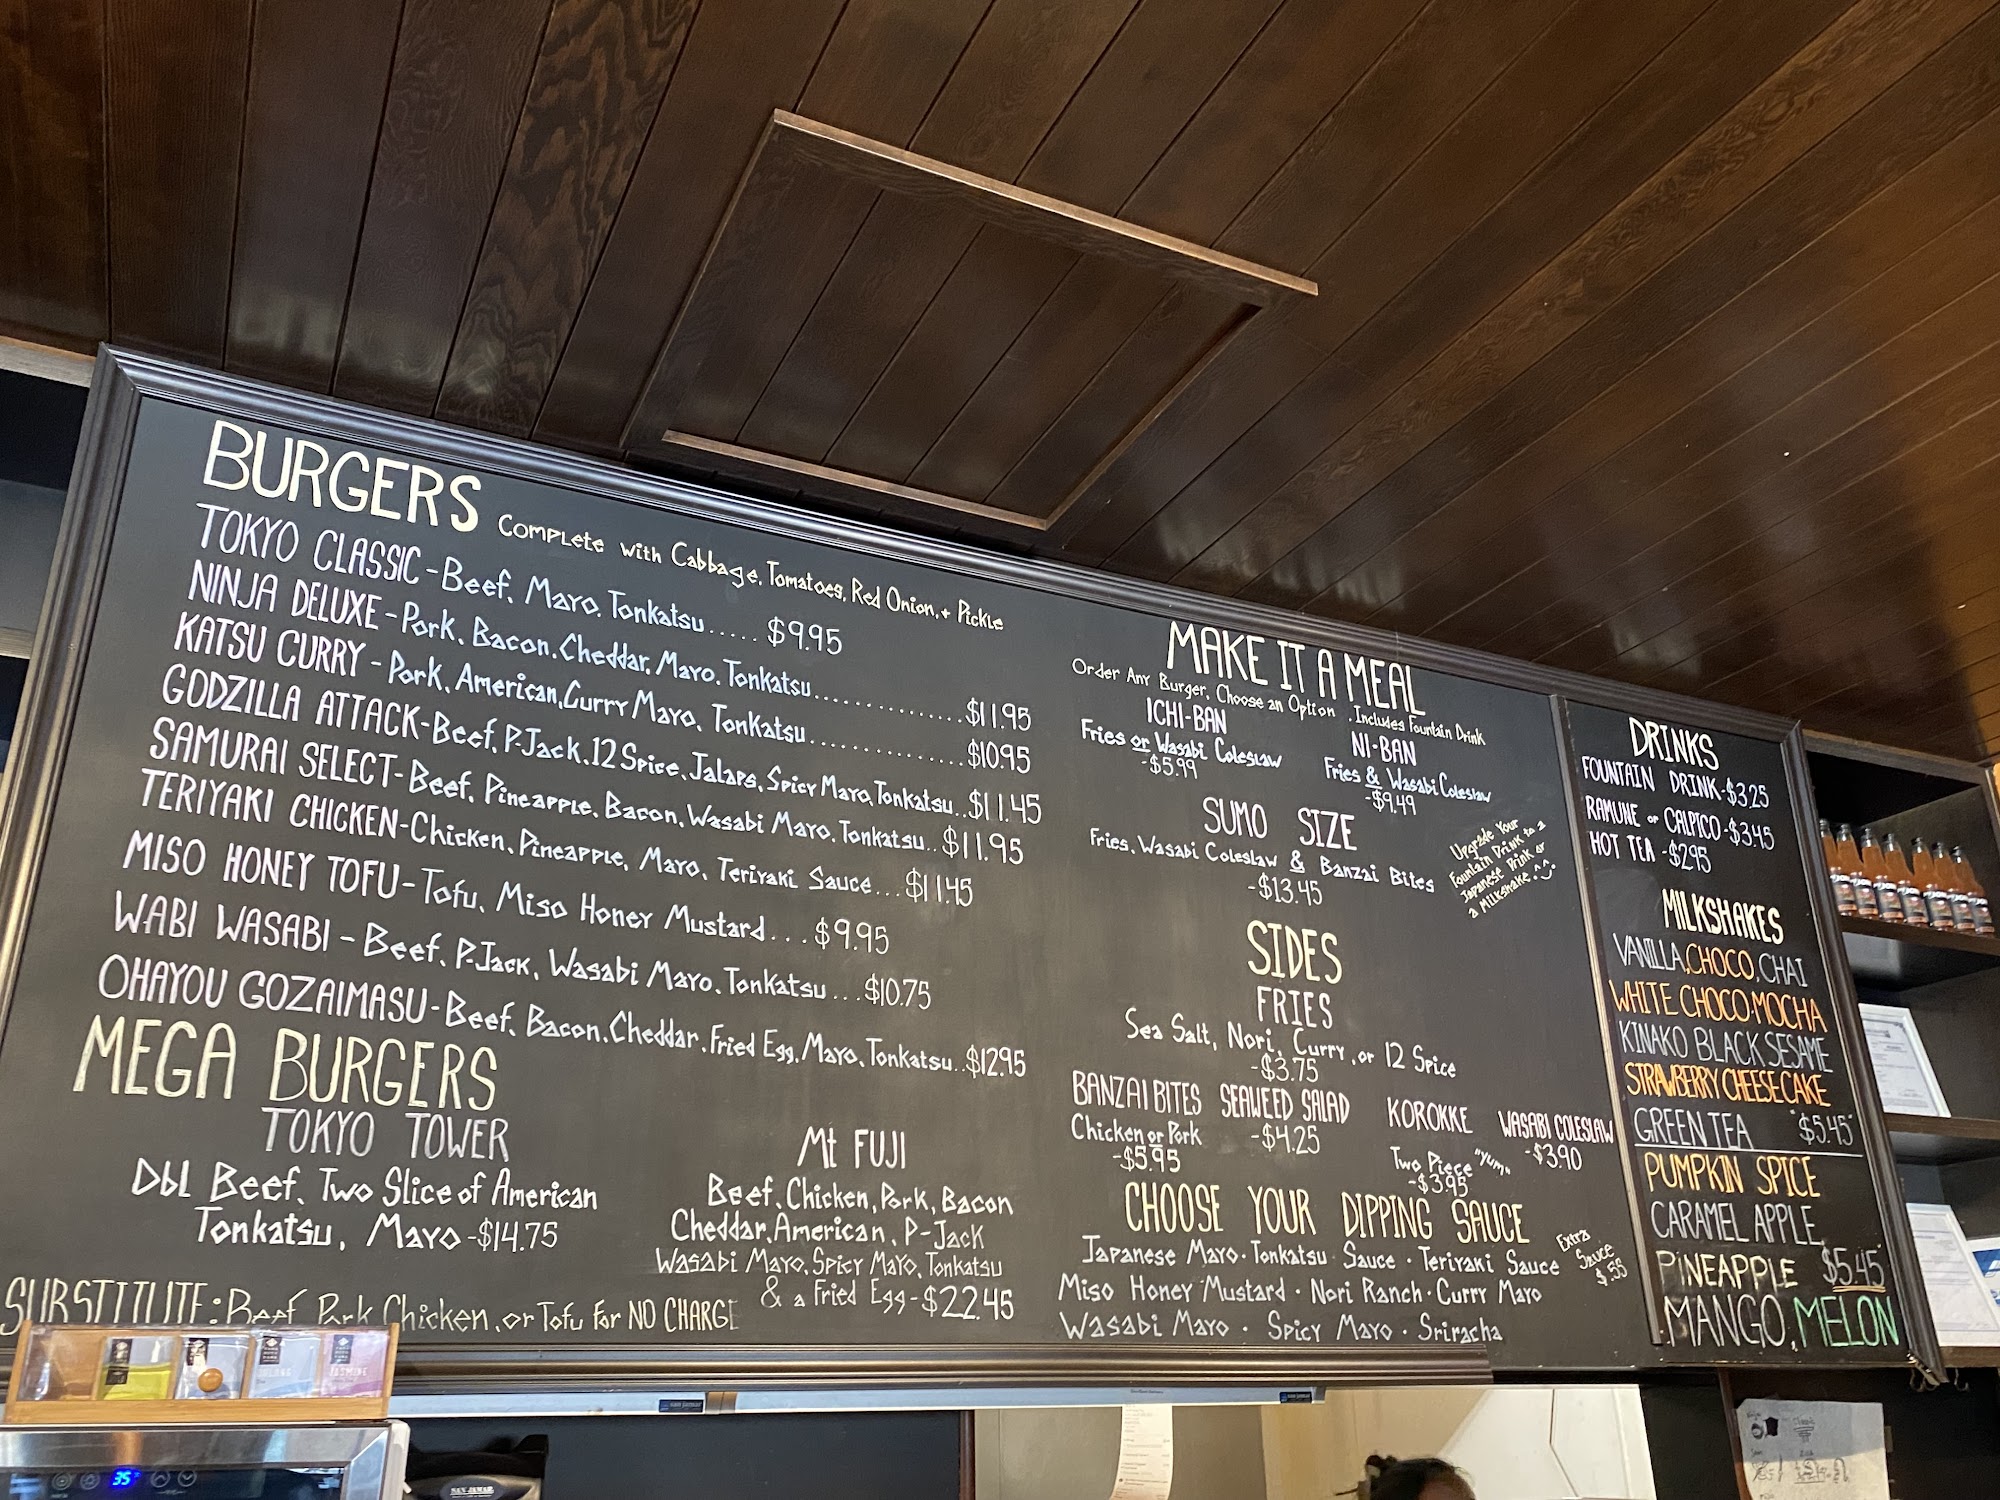 BURGERS Complete with Cabbage, Tomatoes, Red Onion, + Pickle
TOKYO CLASSIC - Beef, Mayo, Tonkatsu..... $9.95
NINJA DELUXE - Pork, Bacon, Cheddar, Mayo, Tonkatsu.............. $11.95
KATSU CURRY - Pork, American, Curry Mayo, Tonkatsu.............. $10.95
GODZILLA ATTACK - Beef, P-Jack, 12 Spice, Jalaps, Spicy Mayo, Tonkatsu..$11.45
SAMURAI SELECT - Beef, Pineapple, Bacon, Wasabi Mayo, Tonkatsu..$11.95
TERIYAKI CHICKEN - Chicken, Pineapple, Mayo, Teriyaki Sauce...$11.45
MISO HONEY TOFU - Tofu, Miso Honey Mustard...$9.95
WABI WASABI - Beef, P-Jack, Wasabi Mayo, Tonkatsu...$10.75
OHAYOU GOZAIMASU - Beef, Bacon, Cheddar, Fried Egg, Mayo, Tonkatsu..$12.95
MEGA BURGERS
TOKYO TOWER
Dbl Beef, Two Slice of American
Tonkatsu, Mayo - $14.75
Mt FUJI
Beef, Chicken, Pork, Bacon
Cheddar, American, P-Jack
Wasabi Mayo, Spicy Mayo, Tonkatsu
& a Fried Egg - $22.45
SUBSTITUTE: Beef, Pork, Chicken, or Tofu for NO CHARGE
MAKE IT A MEAL
Order Any Burger, Choose an Option. Includes Fountain Drink
ICHI-BAN
Fries or Wasabi Coleslaw
-$5.99
NI-BAN
Fries & Wasabi Coleslaw
-$9.49
SUMO SIZE
Fries, Wasabi Coleslaw & Banzai Bites
-$13.45
Upgrade Your
Fountain Drink to a
Japanese Drink or
a Milkshake ^.^
SIDES
FRIES
Sea Salt, Nori, Curry, or 12 Spice
-$3.75
BANZAI BITES
Chicken or Pork
-$5.95
SEAWEED SALAD
-$4.25
KOROKKE
Two Piece "yum"
-$3.95
WASABI COLESLAW
-$3.90
CHOOSE YOUR DIPPING SAUCE
Japanese Mayo · Tonkatsu Sauce · Teriyaki Sauce
Miso Honey Mustard · Nori Ranch · Curry Mayo
Wasabi Mayo · Spicy Mayo · Sriracha
Extra
Sauce
$.55
DRINKS
FOUNTAIN DRINK - $3.25
RAMUNE or CALPICO - $3.45
HOT TEA - $2.95
MILKSHAKES
VANILLA, CHOCO, CHAI
WHITE CHOCO·MOCHA
KINAKO BLACK SESAME
STRAWBERRY CHEESECAKE
GREEN TEA "$5.45"
PUMPKIN SPICE
CARAMEL APPLE
PINEAPPLE $5.45"
MANGO, MELON
JASMINE
35
SAN JAMAR
san jamar
san jamar